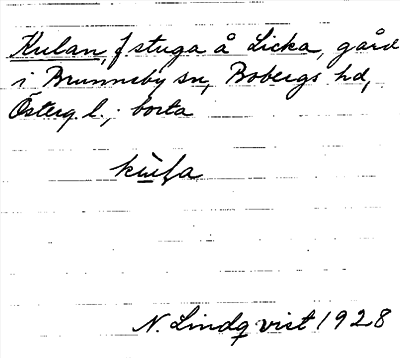 Kulan, f stuga å Licka, gård
i Brunneby sn, Bobergs hd,
Österg. l.; borta
N. Lindqvist 1928